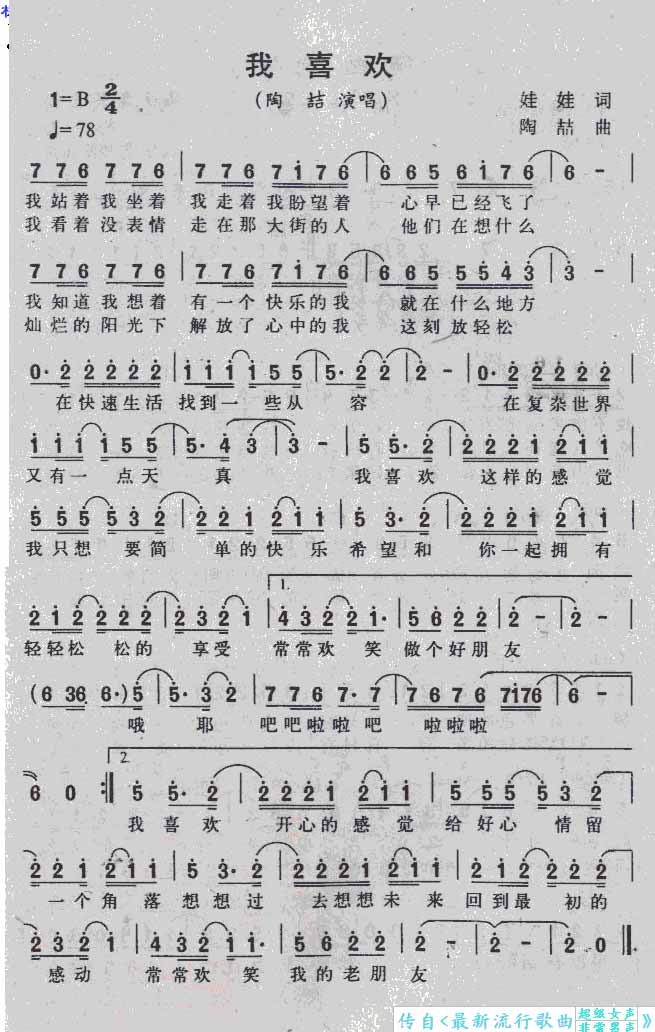 我 喜 欢
1=B 2/4
(陶 喆 演唱)
娃 娃 词
♩=78
陶 喆 曲
7 7 6 7 7 6 | 7 7 6 7 i 7 6 | 6 6 5 6 i 7 6 | 6 –
我站着我坐着 我走着我盼望着 心早已经飞了
我看着没表情 走在那大街的人 他们在想什么
7 7 6 7 7 6 | 7 7 6 7 i 7 6 | 6 6 5 5 5 4 3 | 3 –
我知道我想着 有一个快乐的我 就在什么地方
灿烂的阳光下 解放了心中的我 这刻放轻松
0· 2 2 2 2 2 | i i i i 5 5 | 5· 2 2 | 2 – | 0· 2 2 2 2 2
在快速生活 找到一些从 容 在复杂世界
i i i i 5 5 | 5· 4 3 | 3 – | 5 5· 2 | 2 2 2 i 2 i i
又有一点天 真 我喜欢 这样的感觉
5 5 5 5 3 2 | 2 2 i 2 i i | 5 3· 2 | 2 2 2 i 2 i i
我只想 要简 单的快乐希望和 你一起拥有
1.
2 i 2 2 2 | 2 3 2 i | 4 3 2 2 i· | 5 6 2 2 | 2 – | 2 –
轻轻松 松的 享受 常常欢 笑 做个好朋友
(6 36 6·) 5 | 5· 3 2 | 7 7 6 7· 7 | 7 6 7 6 7i76 | 6 –
哦 耶 吧吧啦啦吧 啦啦啦
2.
6 0 :‖ 5 5· 2 | 2 2 2 i 2 i i | 5 5 5 5 3 2
我喜欢 开心的感觉 给好心 情留
2 2 i 2 i i | 5 3· 2 | 2 2 2 i 2 i i | 2 i 2 2 2
一个角 落想想过 去想想未 来回到最 初的
2 3 2 i | 4 3 2 i i· | 5 6 2 2 | 2 – | 2 – | 2 0 ‖
感动 常常欢 笑 我的老朋友
传自<最新流行歌曲 超级女声 非常男声 》